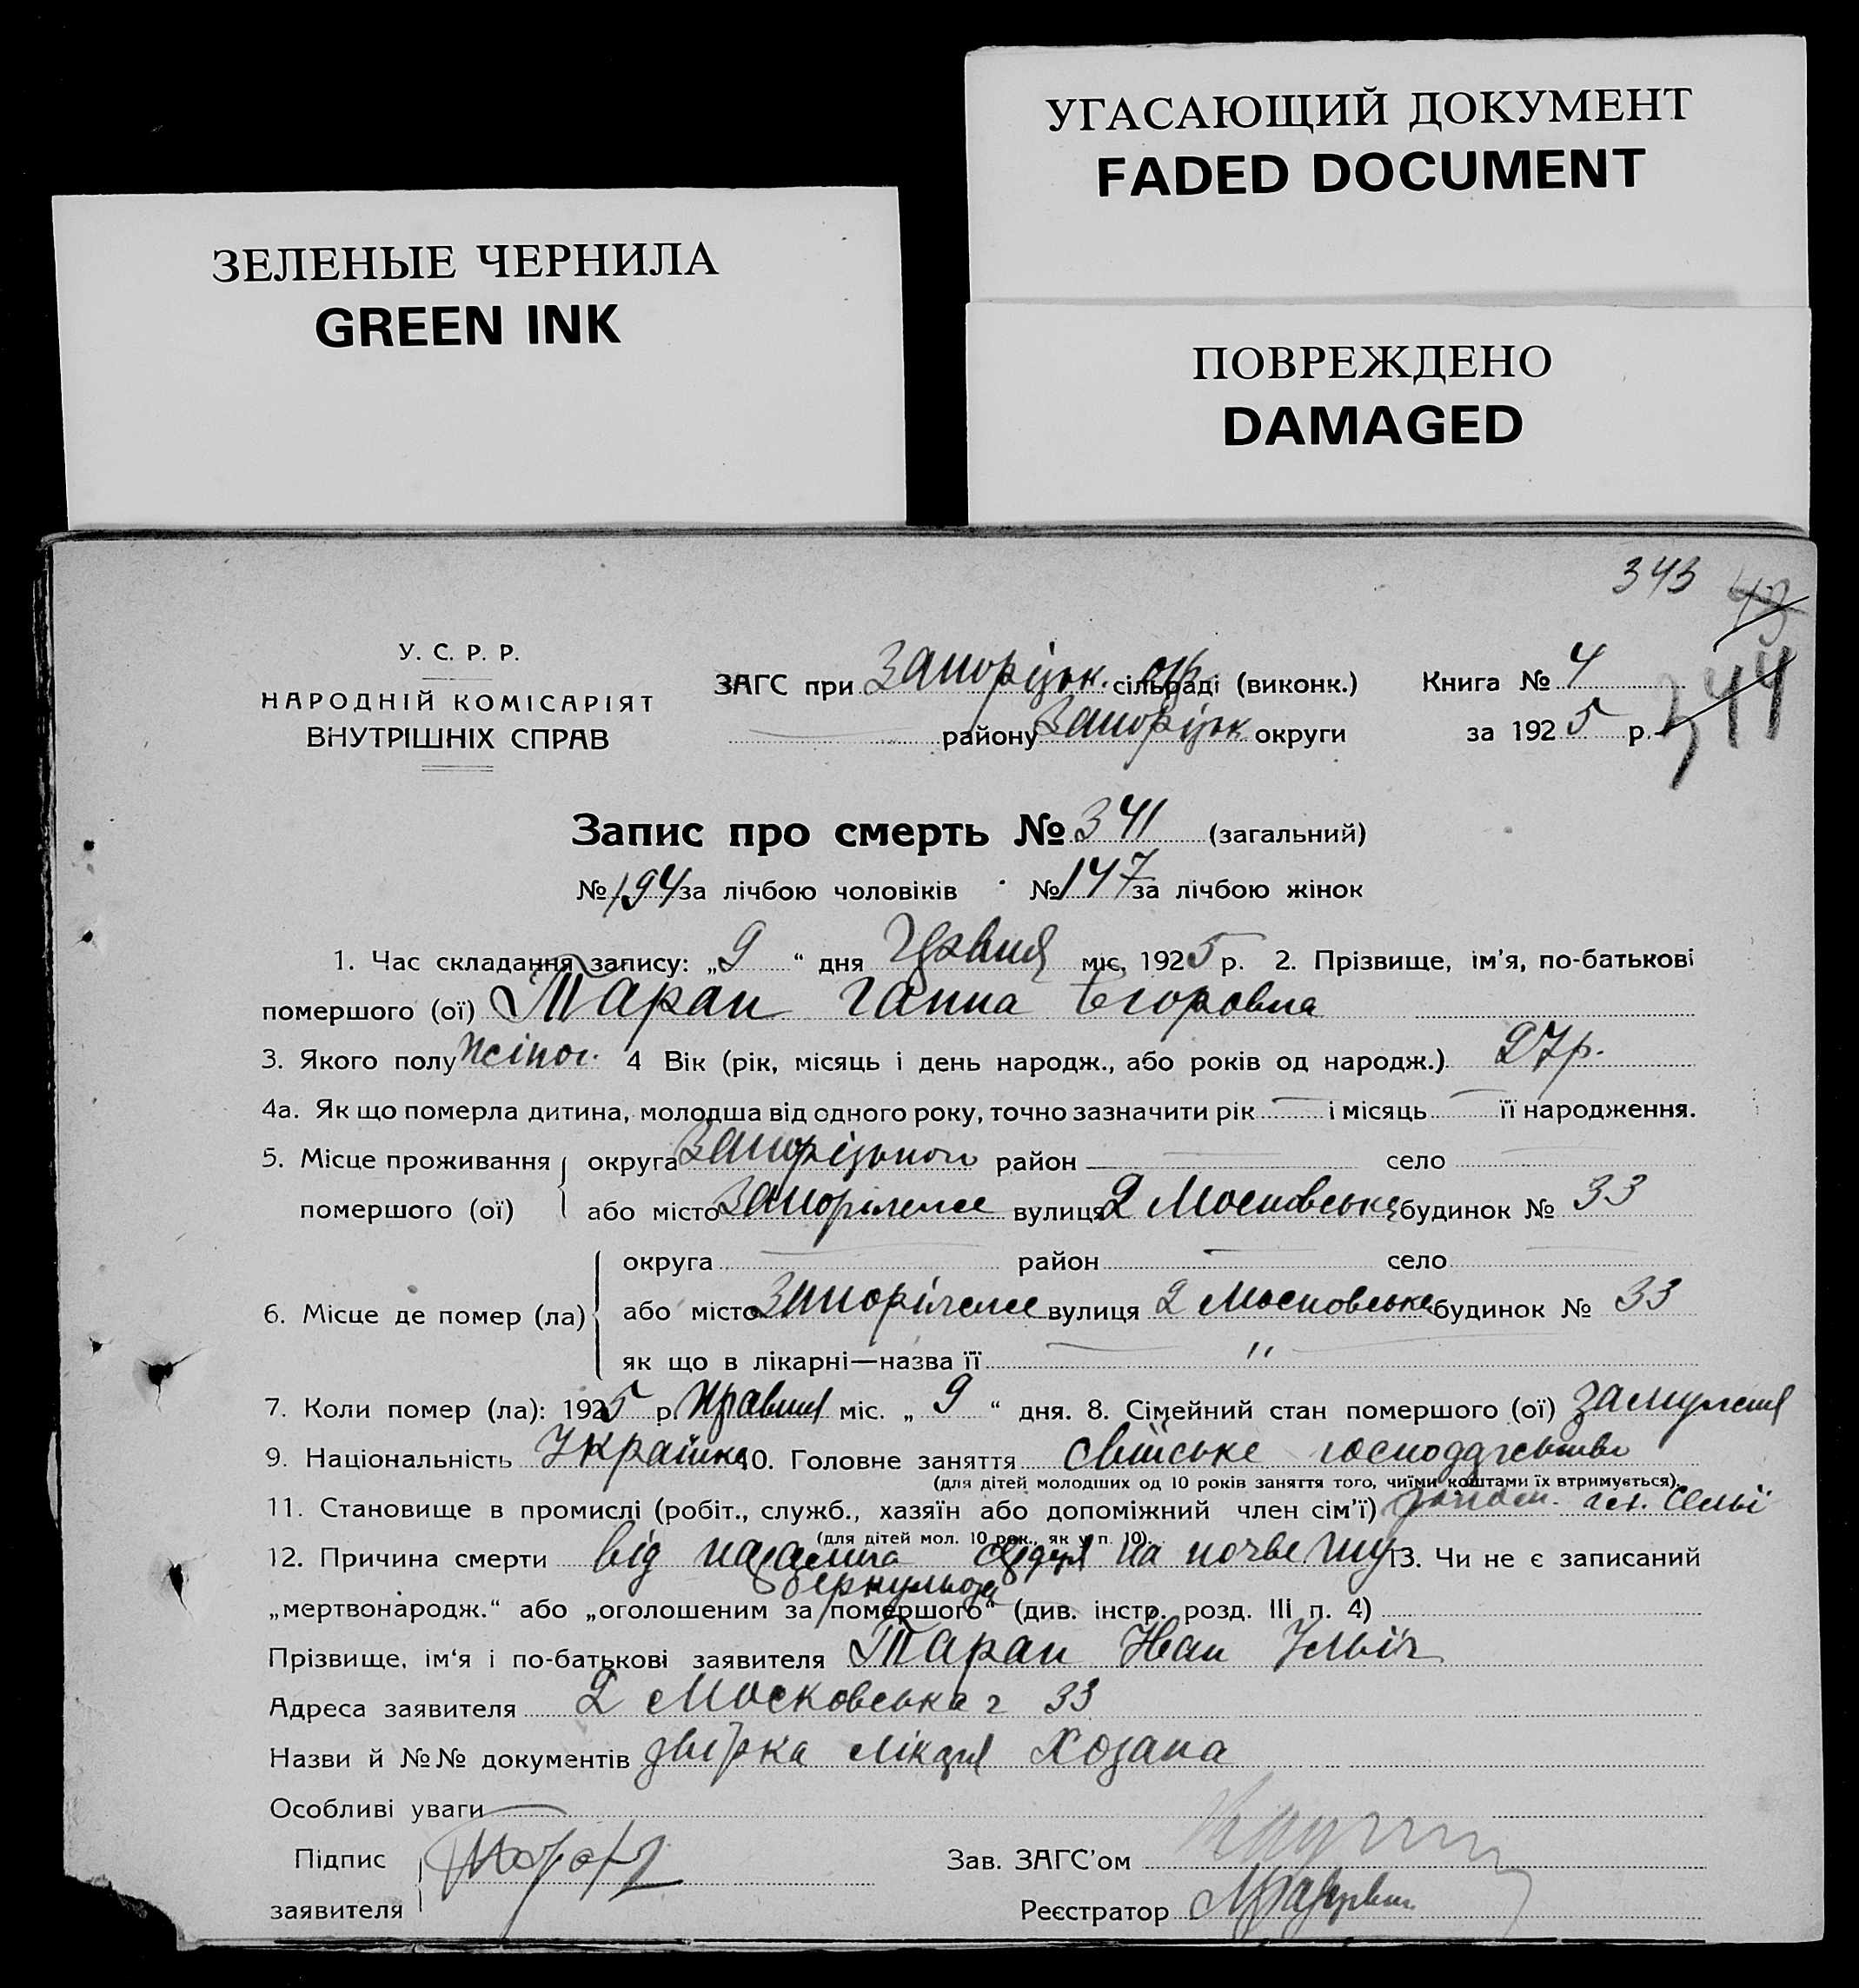 УГАСАЮЩИЙ ДОКУМЕНТ
FADED DOCUMENT
ЗЕЛЕНЫЕ ЧЕРНИЛА
GREEN INK
ПОВРЕЖДЕНО
DAMAGED
343 43
344
У. С. Р. Р.
НАРОДНІЙ КОМІСАРІЯТ
ВНУТРІШНІХ СПРАВ
ЗАГС при Запорізьк. окр. сільраді (виконк.) Книга № 4
району Запорізьк округи за 1925 р.
Запис про смерть № 341 (загальний)
№ 194 за лічбою чоловіків № 147 за лічбою жінок
1. Час складання запису: „9“ дня Червня міс. 1925 р. 2. Прізвище, ім'я, по-батькові
помершого (ої) Таран Ганна Егоровна
3. Якого полу жіноч. 4 Вік (рік, місяць і день народж., або років од народж.) 27р.
4а. Як що померла дитина, молодша від одного року, точно зазначити рік і місяць її народження.
5. Місце проживання помершого (ої) округа Запорізького район село
або місто Запоріжже вулиця 2 Московська будинок № 33
6. Місце де помер (ла) округа район село
або місто Запоріжже вулиця 2 Московська будинок № 33
як що в лікарні—назва її "
7. Коли помер (ла): 1925 р. міс. „9“ дня. 8. Сімейний стан помершого (ої) замужня
9. Національність Українка 10. Головне заняття свійське господарство
(для дітей молодших од 10 років заняття того, чиїми коштами їх втримується).
11. Становище в промислі (робіт., служб., хазяїн або допоміжний член сім'ї) чл. семьї
(для дітей мол. 10 рок., як у п. 10).
12. Причина смерти від на почве 13. Чи не є записаний
„мертвонародж.“ або „оголошеним за помершого“ (див. інстр. розд. III п. 4)
Прізвище, ім'я і по-батькові заявителя Таран Иван Ильіч
Адреса заявителя 2 Московська ч 33
Назви й №№ документів лікаря Хозана
Особливі уваги
Підпис заявителя
Зав. ЗАГС'ом
Реєстратор